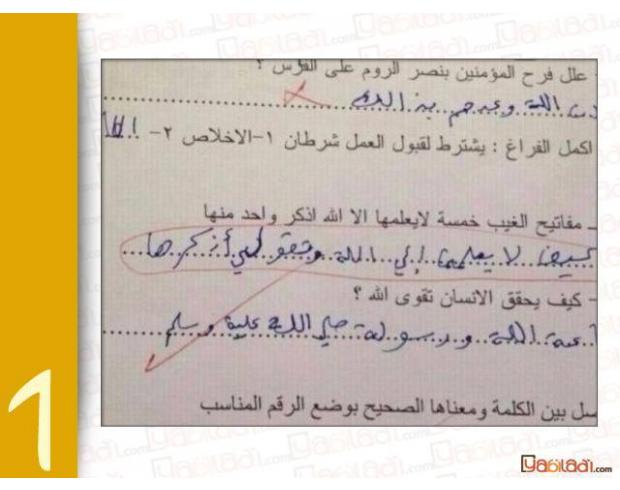 علل فرح المؤمنين بنصر الروم على الفرس ؟
الله وعدهم بذالك
اكمل الفراغ : يشترط لقبول العمل شرطان ١-الاخلاص ٢-
ـ مفاتيح الغيب خمسة لايعلمها الا الله اذكر واحد منها
كييف لا يعلمها إلى الله وتقولي أذكرها
- كيف يحقق الانسان تقوى الله ؟
الله ورسوله صلى الله عليه وسلم
بين الكلمة ومعناها الصحيح بوضع الرقم المناسب
1
Yabiladi.com